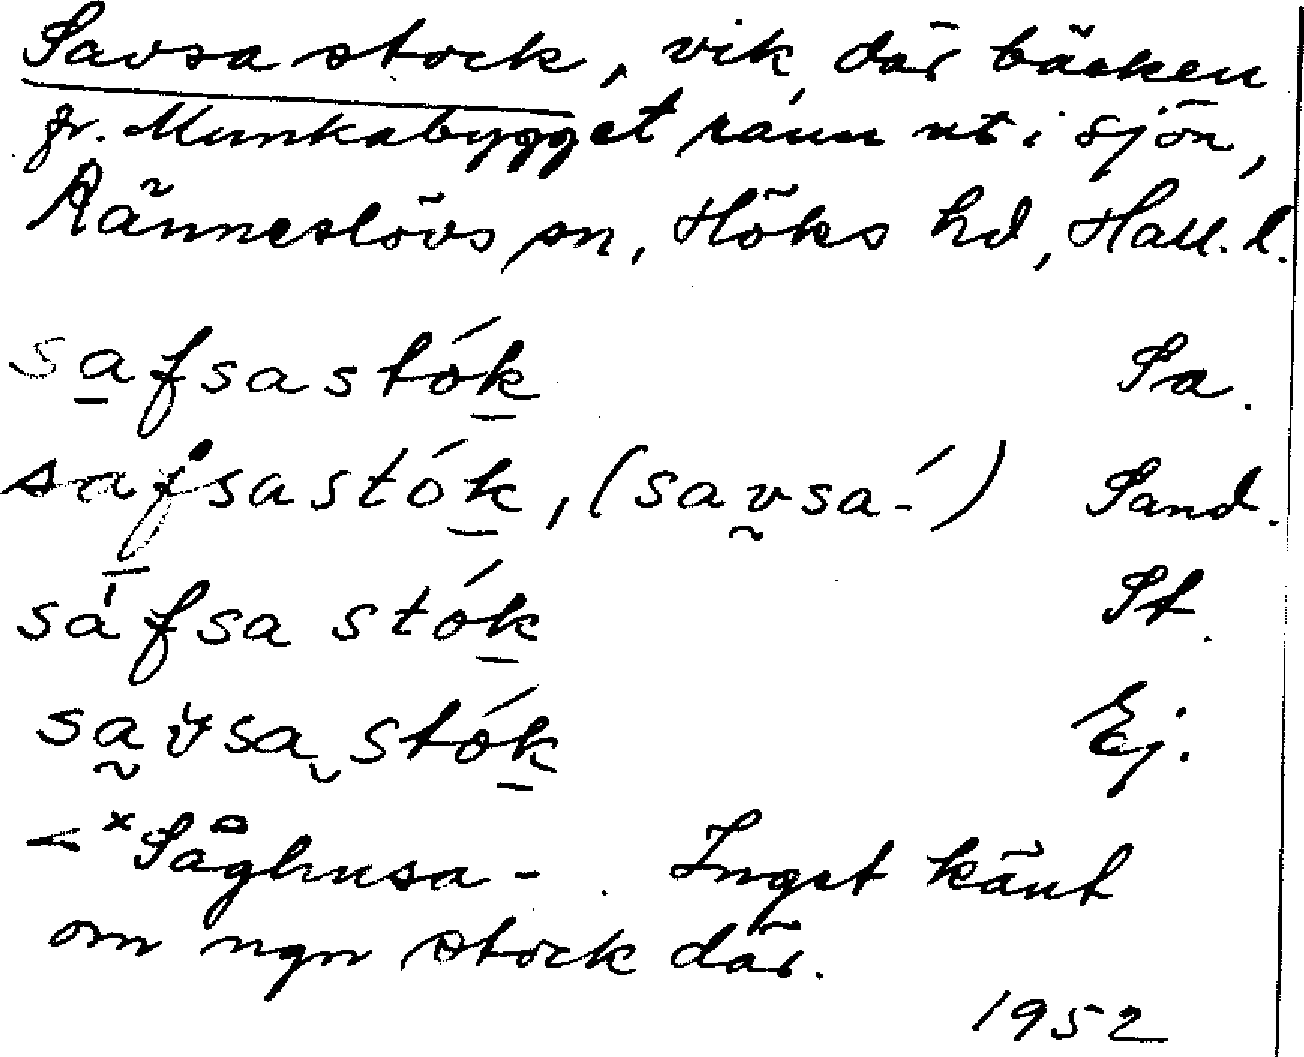 Savsastock, vik, där bäcken
fr. Munkabygget rann ut i sjön,
Ränneslövs sn, Höks hd, Hall. l.
safsastók Sa.
safsastók, (savsa-́) Sand.
sáfsa stók St.
savsa stók Ej.
< *Såghusa- . Inget känt
om ngn stock där.
1952